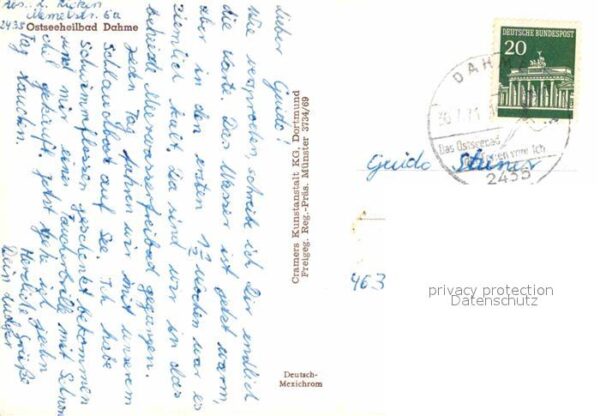 2435
Ostseeheilbad Dahme
Lieber Guido!
Wie versprochen, schreibe ich Dir endlich
die Karte. Das Wasser ist jetzt warm,
aber in den ersten 1½ Wochen war es
ziemlich kalt. Da sind wir in das
beheizte Meerwasserfreibad gegangen.
Jeden Tag fahren wir mit unserem
Schlauchboot auf See. Ich habe
Schwimmflossen geschenkt bekommen
und mir eine Taucherbrille mit Schnor
chel gekauft. Jetzt geh ich jeden
Tag tauchen.
Herzliche Grüße
Dein
Cramers Kunstanstalt KG, Dortmund
Freigeg. Reg.-Präs. Münster 3734/69
Deutsch-
Mexichrom
DEUTSCHE BUNDESPOST
20
DAHME
Das Ostseebad
2435
Guido
463
privacy protection
Datenschutz